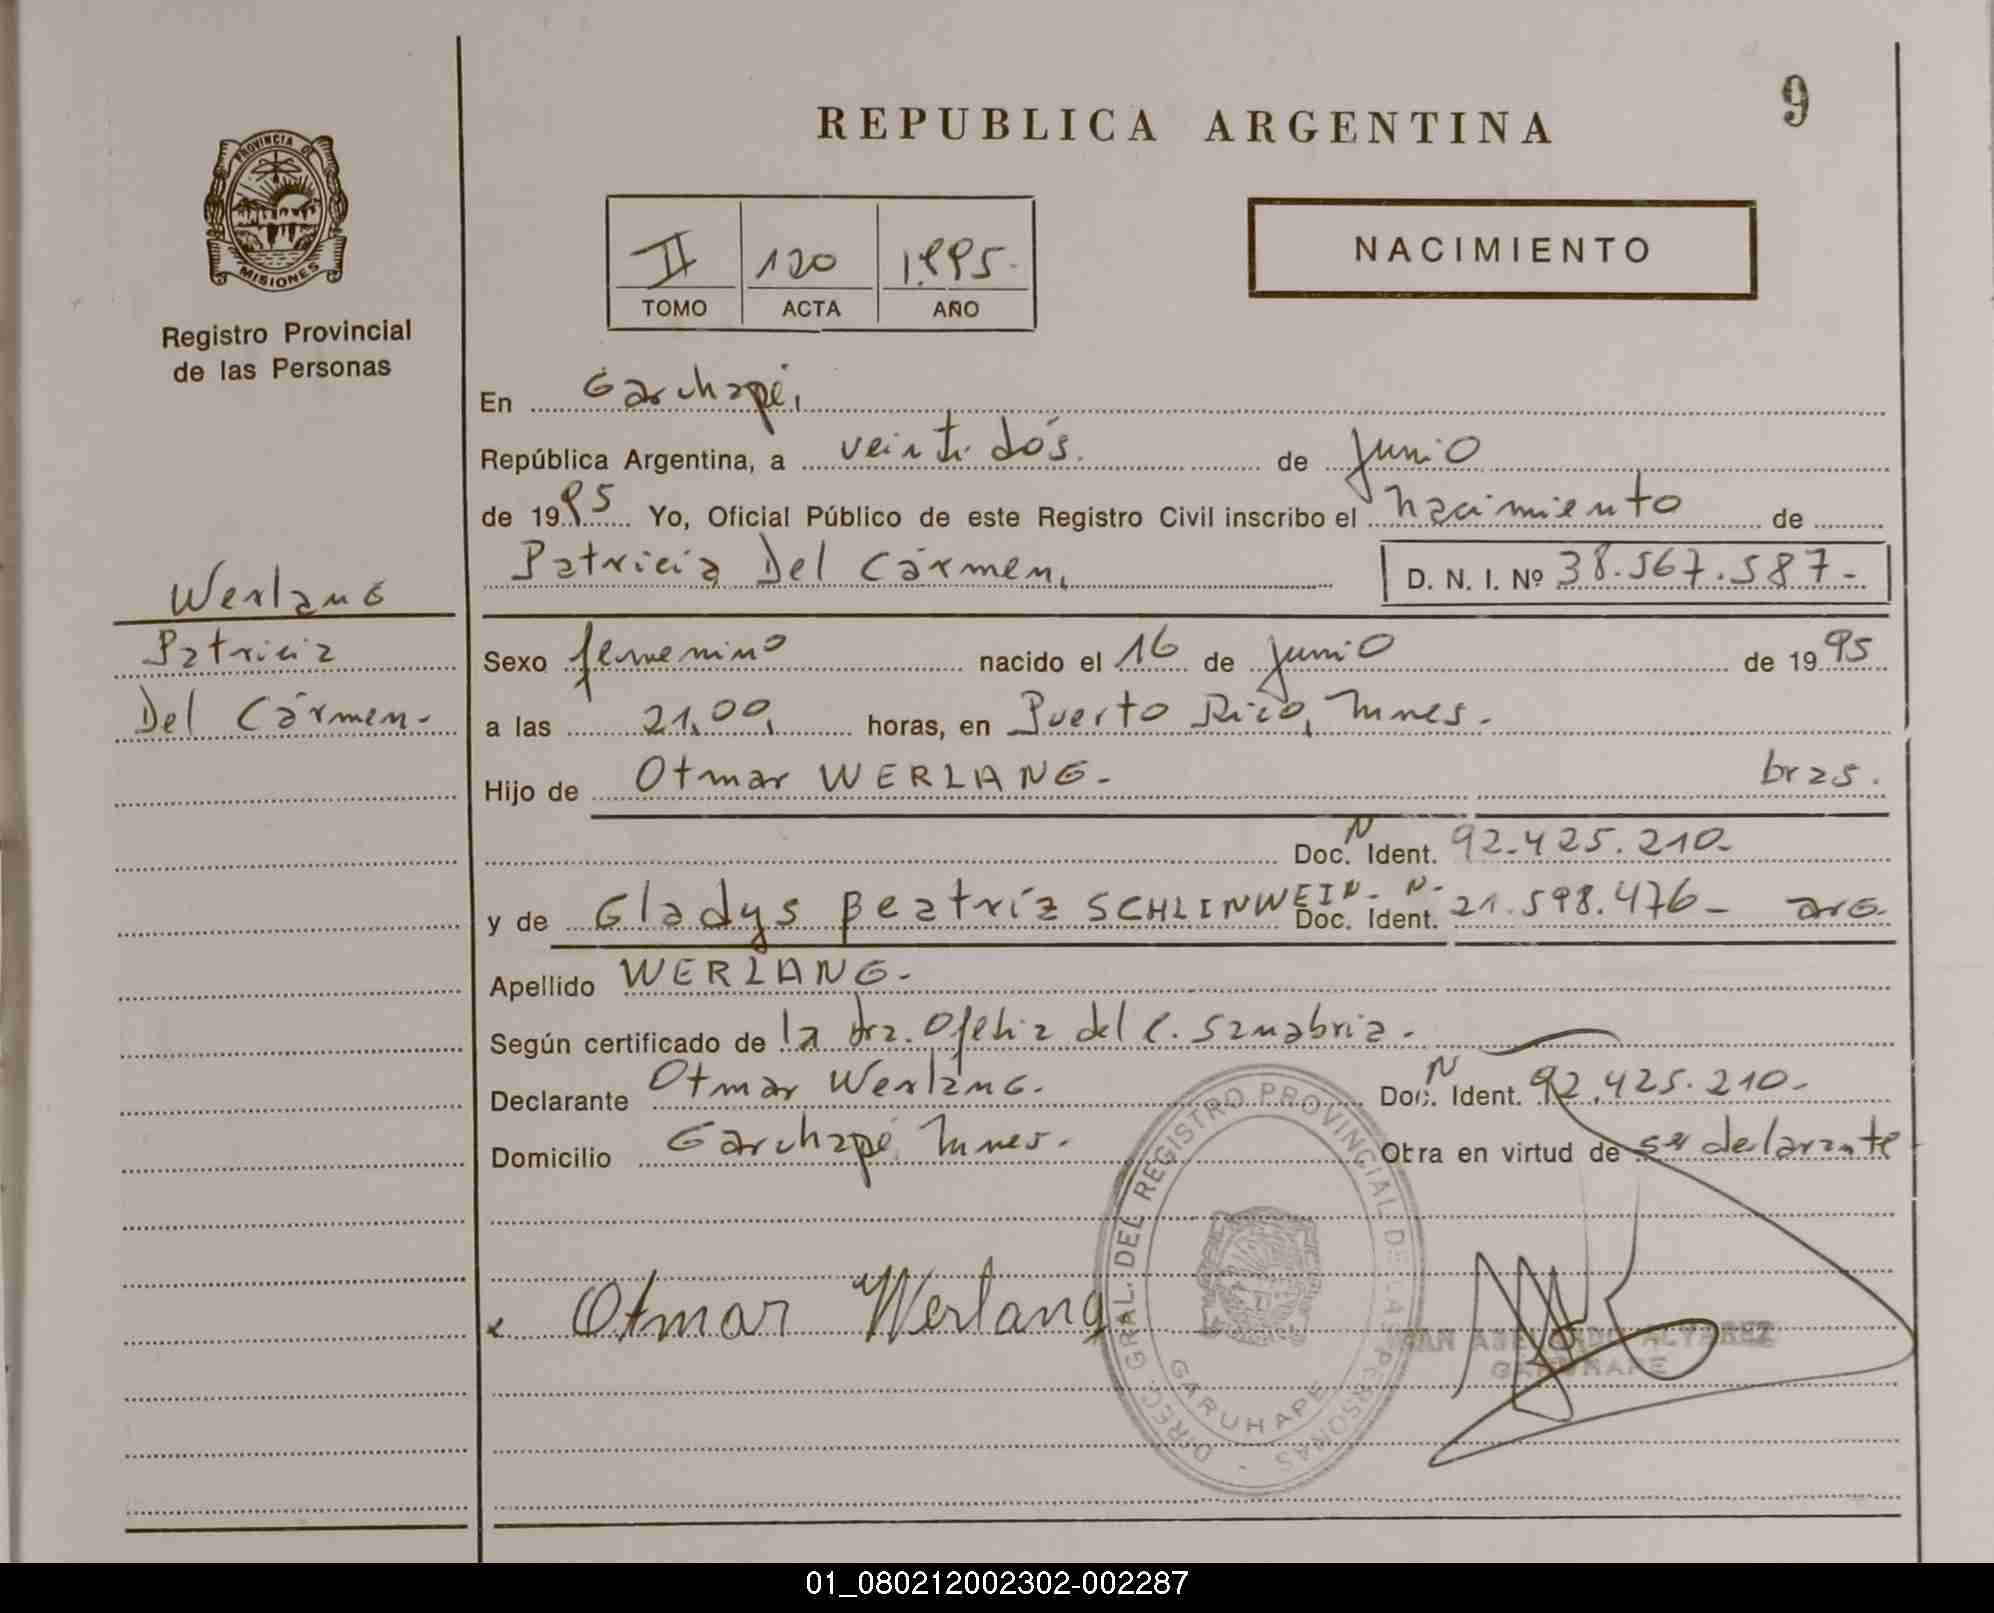 9
REPUBLICA ARGENTINA
PROVINCIA DE
MISIONES
Registro Provincial
de las Personas
II 120 1.995.
TOMO ACTA AÑO
NACIMIENTO
En Garuhapé,
República Argentina, a veinti dós. de Junio
de 1995 Yo, Oficial Público de este Registro Civil inscribo el Nacimiento de
Patricia Del Cármen, D. N. I. Nº 38.567.587-
Werlang
Patricia
Del Cármen-
Sexo femenino nacido el 16 de Junio de 1995
a las 21,00, horas, en Puerto Rico, Mnes.
Hijo de Otmar WERLANG- bras.
Doc. N Ident. 92.425.210-
y de Gladys Beatríz SCHLINWEIN- N- Doc. Ident. 21.598.476- arg.
Apellido WERLANG-
Según certificado de la dra. Ofelia del C. Sanabria.
Declarante Otmar Werlang. Doc. N Ident. 92.425.210-
Domicilio Garuhapé, Mnes. Obra en virtud de ser declarante
Otmar Werlang
DIREC. GRAL. DEL REGISTRO PROVINCIAL DE LAS PERSONAS -
GARUHAPE
ALVAREZ
GARUHAPE
01_080212002302-002287